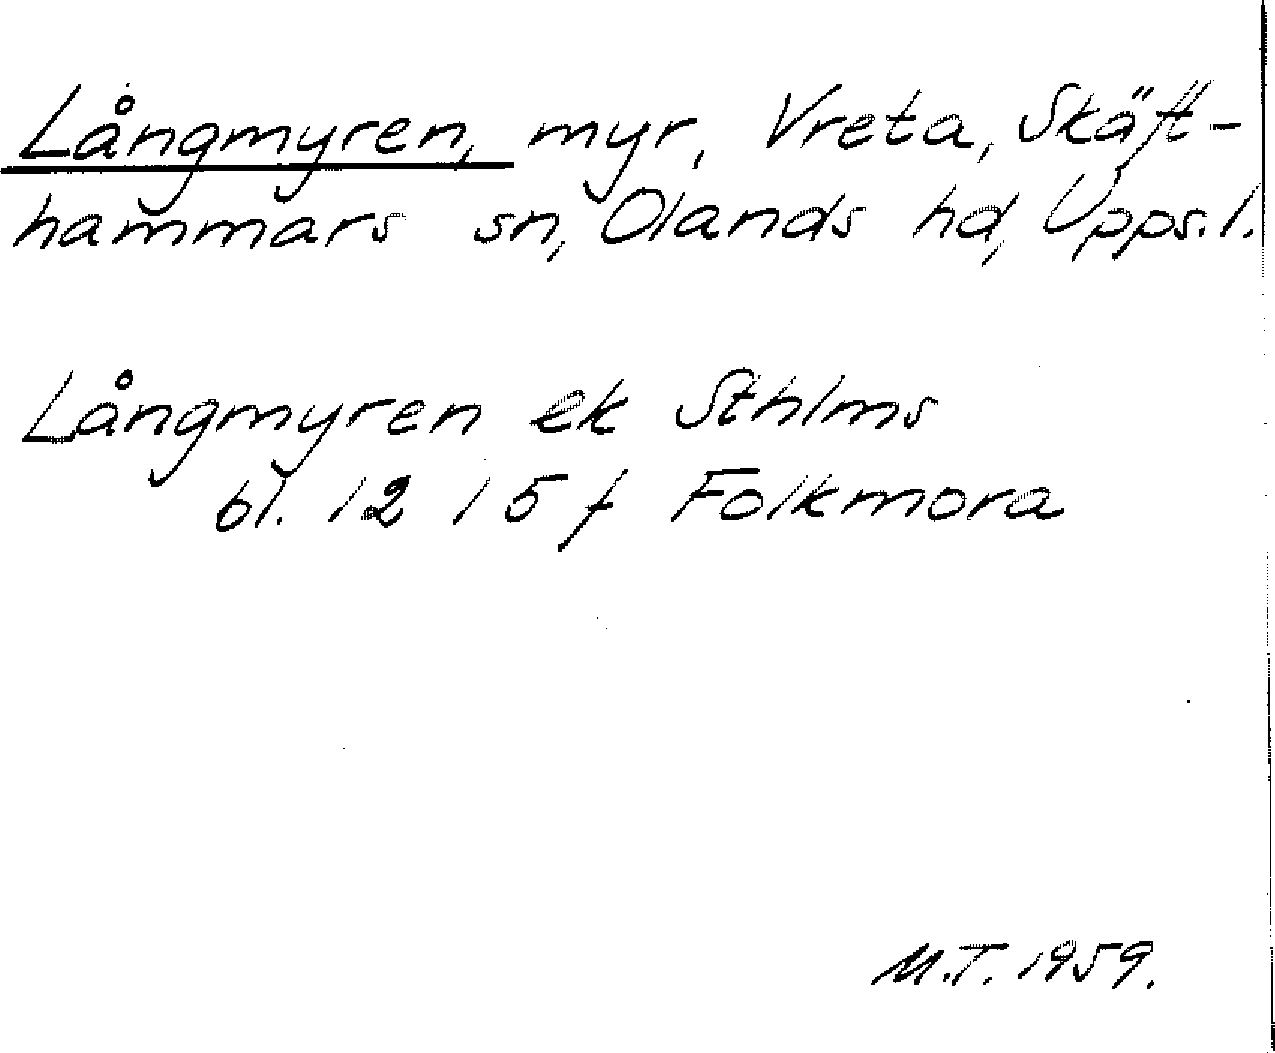 Långmyren, myr, Vreta, Skäft-
hammars sn, Olands hd, Upps.l.
Långmyren ek Sthlms
bl. 12 15 f Folkmora
M.T. 1959.